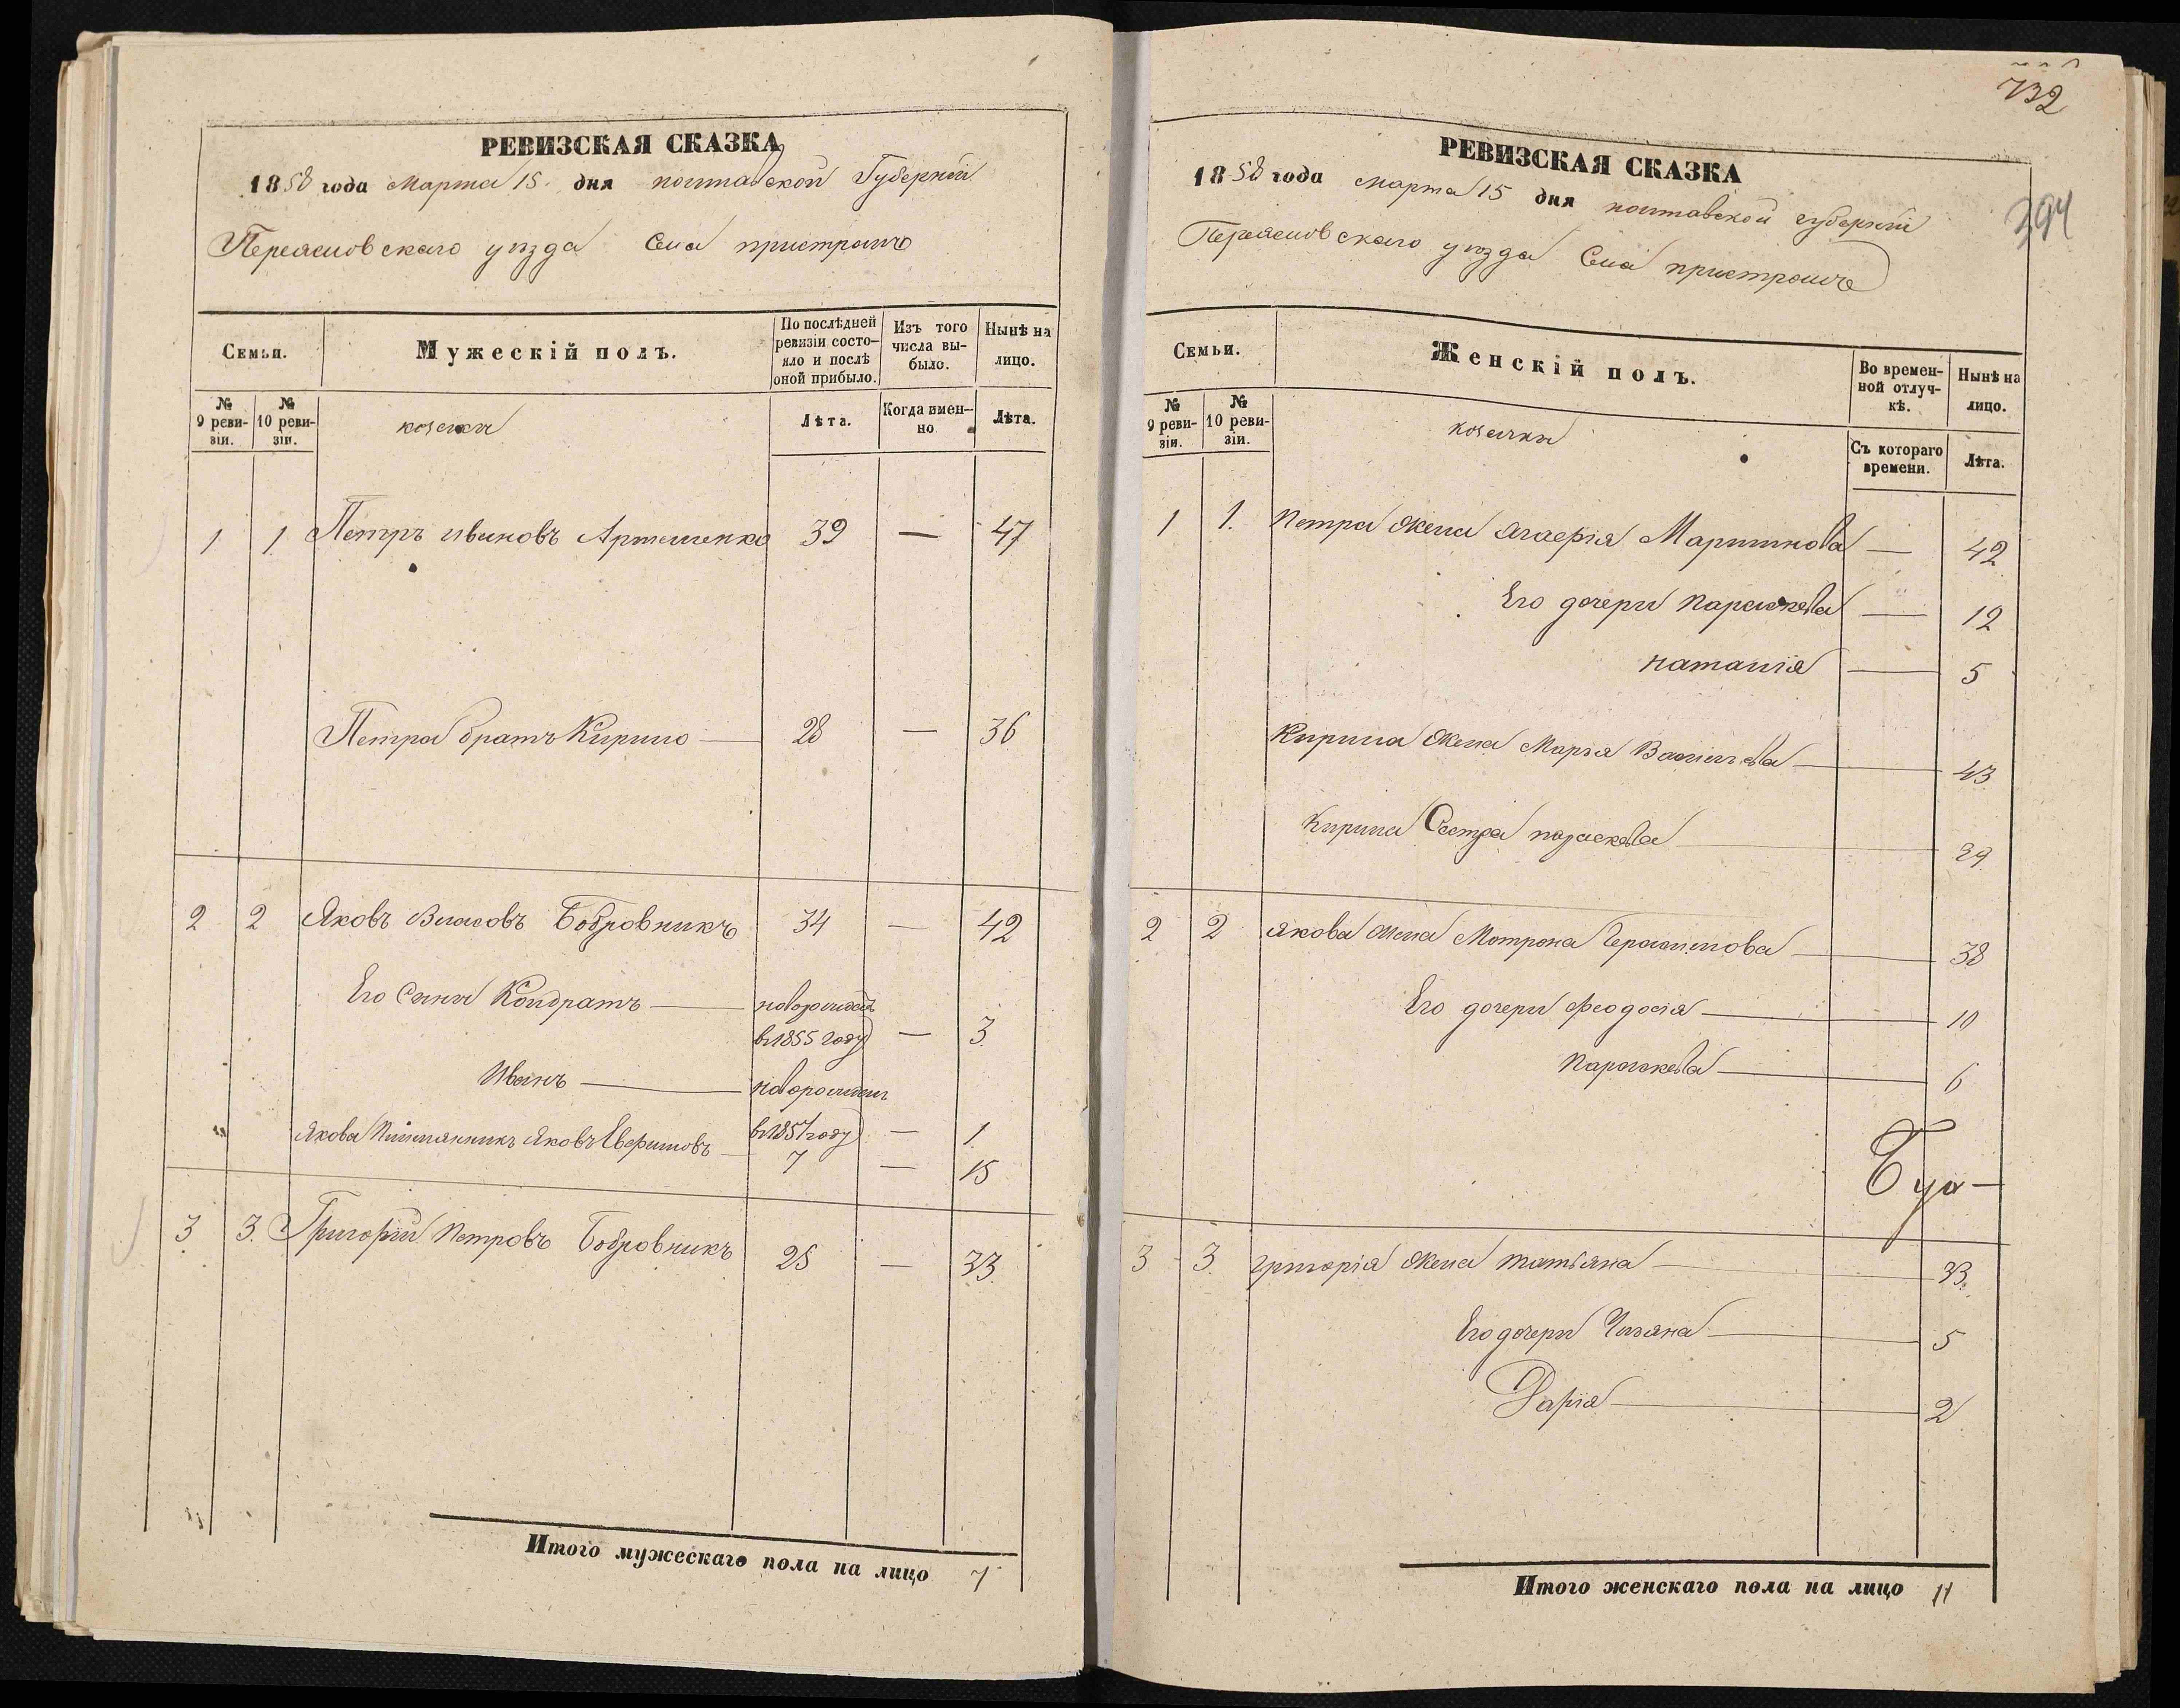 РЕВИЗСКАЯ СКАЗКА
1858 года Марта 15 дня полтавской Губерніи
Переяславскаго уѣзда Села пристромъ
Семьи.
Мужескій полъ.
По послѣдней ревизіи состояло и послѣ оной прибыло.
Изъ того числа выбыло.
Нынѣ на лицо.
№ 9 ревизіи.
№ 10 ревизіи.
козаки
Лѣта.
Когда именно
Лѣта.
1 1 Петръ ивановъ Артеменко 39 — 47
Петра братъ Кирило — 28 — 36
2 2 Яковъ Власовъ Бобровникъ 34 — 42
Его Сины Кондратъ — новорожденъ
в 1855 году — 3
Иванъ — новорожденъ
в 1857 году — 1
Якова племянникъ Яковъ Евфимовъ 7 — 15
3 3. Григорій Петровъ Бобровникъ 25 — 33.
Итого мужескаго пола на лицо 7
732
394
РЕВИЗСКАЯ СКАЗКА
1858 года марта 15 дня полтавской губерніи
Переяславскаго уѣзда Села пристромъ
Семьи.
Женскій полъ.
Во временной отлучкѣ.
Нынѣ на лицо.
№ 9 ревизіи.
№ 10 ревизіи.
козачки
Съ котораго времени.
Лѣта.
1 1. Петра жена Агафія Мартинова — 42
Его дочери параскева — 12
наталія — 5
Кирила жена Марья Васильева — 43
Кирила Сестра параскева — 29
2 2 якова жена Мотрона Герасимова — 38
Его дочери Феодосія — 10
Параскева — 6
3 3. григорія жена татьяна — 33.
Его дочери — 5
Дарія — 2
Итого женскаго пола на лицо 11